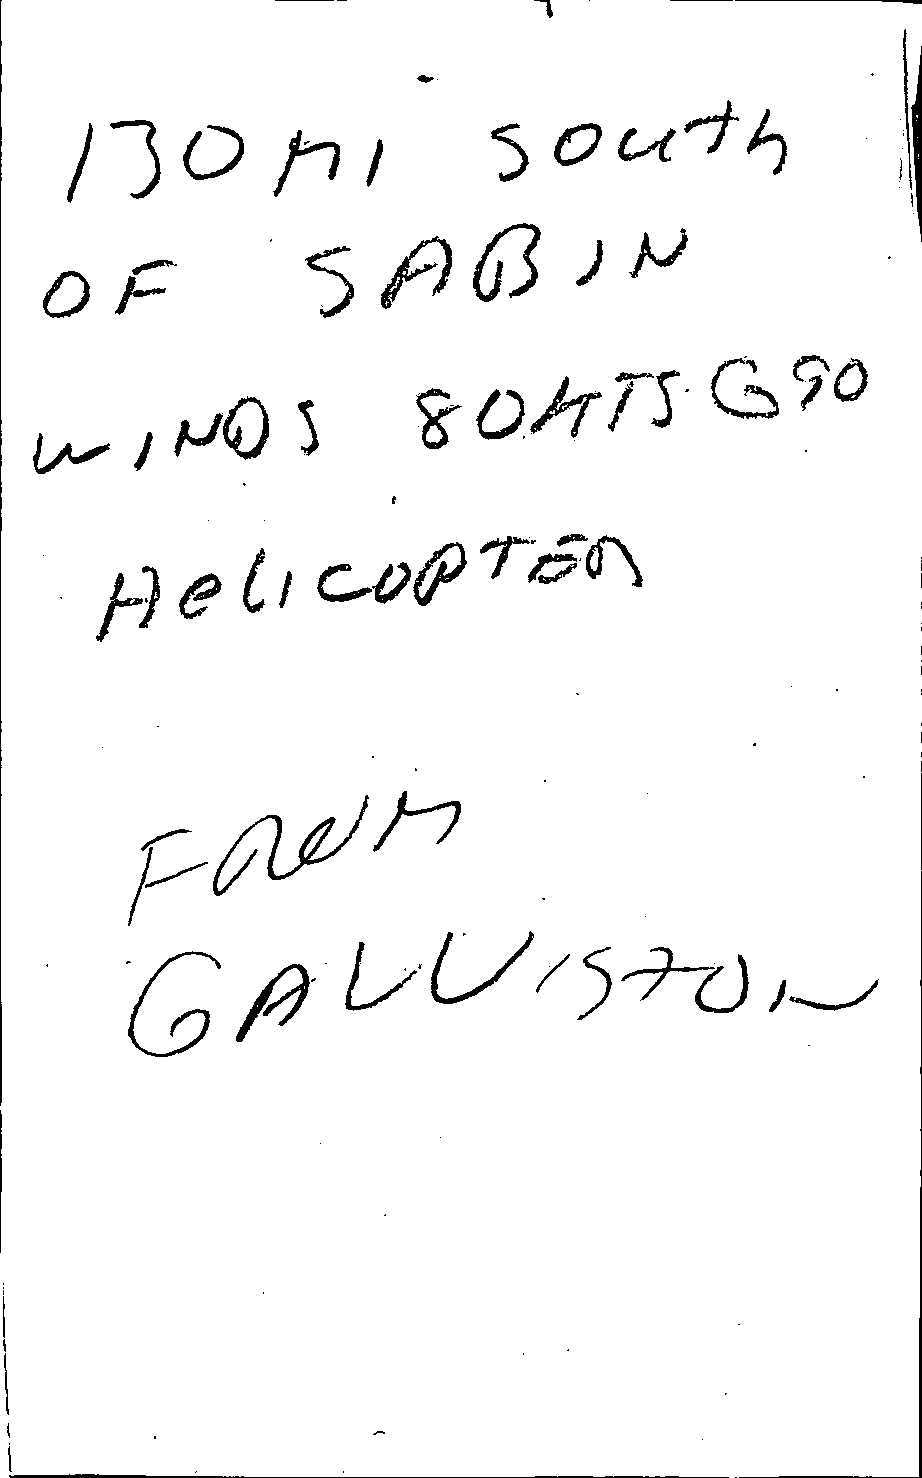 130 MI SOUTH
OF SABIN
WINDS 80KTS G90
HELICOPTER
FROM
GALVISTON